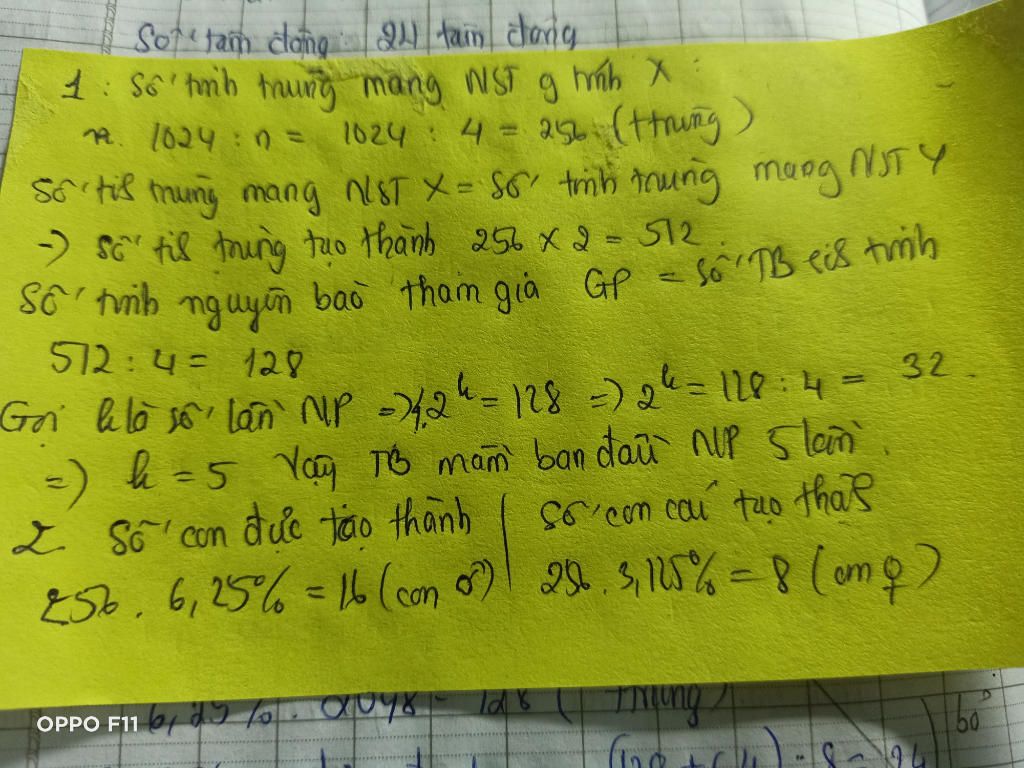 Số tằm đồng: 24 tằm đồng
1: Số tinh trùng mang NST g tính X:
1024 : n = 1024 : 4 = 256 (ttrùng)
Số tih trùng mang NST X = Số tinh trùng mang NST Y
-) số tih trùng tạo thành 256 x 2 = 512
Số tinh nguyên bào tham gia GP = số TB sih tinh
512 : 4 = 128
Gọi k là số lần NP =) 4.2^k = 128 =) 2^k = 128 : 4 = 32.
=) k = 5 Vậy TB mầm ban đầu NP 5 lần.
2. Số con đực tạo thành | Số con cái tạo thàh
256. 6,25% = 16 (con ♂) | 256. 3,125% = 8 (con ♀)
6,25%. 2048 = 128 ( trứng)
60°
8 = 24
OPPO F11